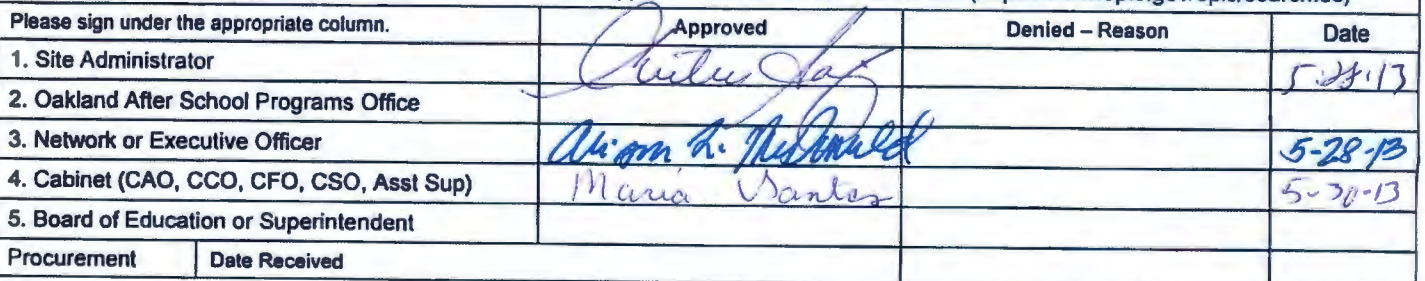 Please sign under the appropriate column. Approved Denied – Reason Date
1. Site Administrator 5-28-13
2. Oakland After School Programs Office
3. Network or Executive Officer 5-28-13
4. Cabinet (CAO, CCO, CFO, CSO, Asst Sup) Maria Santos 5-30-13
5. Board of Education or Superintendent
Procurement Date Received